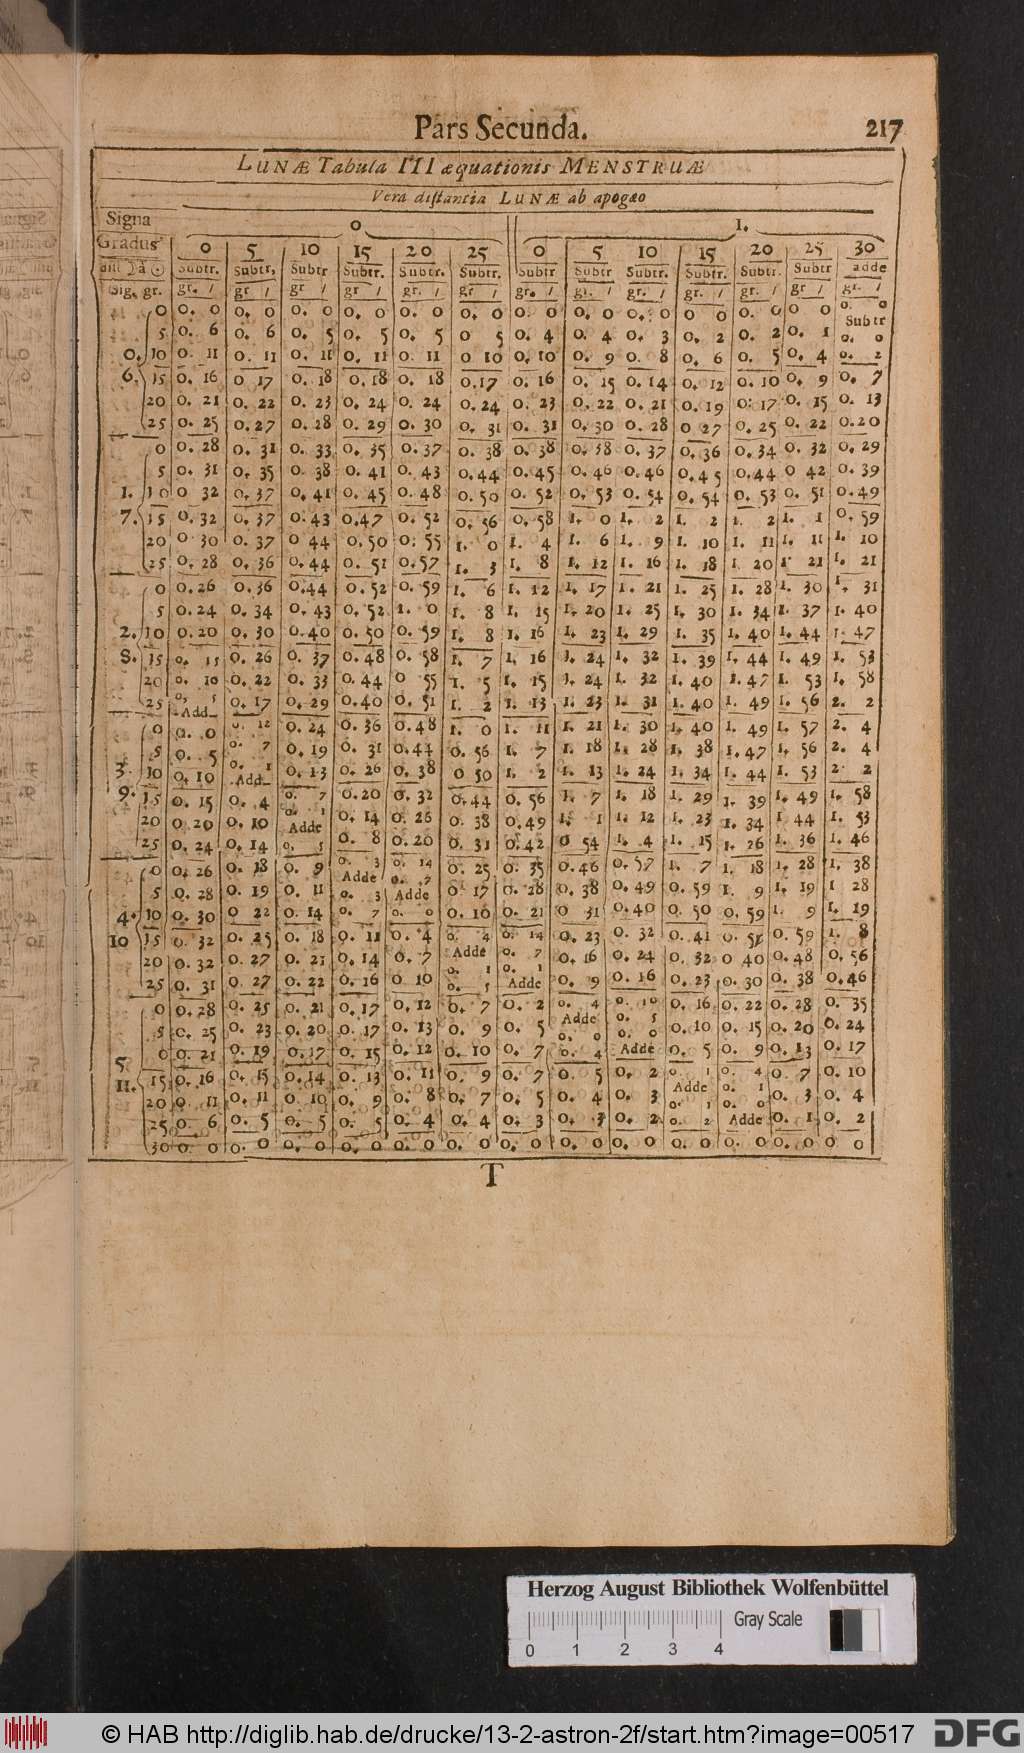 Pars Secunda. 217
LUNÆ Tabula III æquationis MENSTRUÆ
Vera distantia LUNÆ ab apogæo
Signa 0 1.
Gradus 0 5 10 15 20 25 0 5 10 15 20 25 30
Subtr. Subtr, Subtr Subtr. Subtr. Subtr. Subtr Subtr Subtr. Subtr. Subtr. Subtr adde
Sig. gr. gr. / gr / gr / gr / gr. / gr / gr. / gr. / gr. / gr. / gr. / gr / gr. /
0 0. 0 0. 0 0. 0 0. 0 0. 0 0. 0 0. 0 0. 0 0. 0 0 0 0. 0 0 0 0. 0
Subtr
5 0. 6 0. 6 0. 5 0. 5 0. 5 0 5 0. 4 0. 4 0. 3 0. 2 0. 2 0. 1 0. 0
0. 10 0. 11 0. 11 0. 11 0. 11 0. 11 0 10 0. 10 0. 9 0. 8 0. 6 0. 5 0. 4 0. 2
6. 15 0. 16 0 17 0. 18 0. 18 0. 18 0.17 0. 16 0. 15 0. 14 0. 12 0. 10 0. 9 0. 7
20 0. 21 0. 22 0. 23 0. 24 0. 24 0. 24 0. 23 0. 22 0. 21 0. 19 0. 17 0. 15 0. 13
25 0. 25 0. 27 0. 28 0. 29 0. 30 0. 31 0. 31 0. 30 0. 28 0 27 0. 25 0. 22 0.20
0 0. 28 0. 31 0. 33 0. 35 0. 37 0. 38 0. 38 0. 38 0. 37 0. 36 0. 34 0. 32 0. 29
5 0. 31 0. 35 0. 38 0. 41 0. 43 0. 44 0. 45 0. 46 0. 46 0. 45 0. 44 0 42 0. 39
1. 10 0 32 0. 37 0. 41 0. 45 0. 48 0. 50 0. 52 0. 53 0. 54 0. 54 0. 53 0. 51 0.49
7. 15 0. 32 0. 37 0. 43 0.47 0. 52 0. 56 0. 58 1. 0 1. 2 1. 2 1. 2 1. 1 0. 59
20 0. 30 0. 37 0 44 0. 50 0. 55 1. 0 1. 4 1. 6 1. 9 1. 10 1. 11 1. 11 1. 10
25 0. 28 0. 36 0. 44 0. 51 0. 57 1. 3 1. 8 1. 12 1. 16 1. 18 1. 20 1. 21 1. 21
0 0. 26 0. 36 0.44 0. 52 0. 59 1. 6 1. 12 1. 17 1. 21 1. 25 1. 28 1. 30 1. 31
5 0. 24 0. 34 0. 43 0. 52 1. 0 1. 8 1. 15 1. 20 1. 25 1. 30 1. 34 1. 37 1. 40
2. 10 0. 20 0. 30 0.40 0. 50 0. 59 1. 8 1. 16 1. 23 1. 29 1. 35 1. 40 1. 44 1. 47
8. 15 0. 15 0. 26 0. 37 0. 48 0. 58 1. 7 1. 16 1. 24 1. 32 1. 39 1. 44 1. 49 1. 53
20 0. 10 0. 22 0. 33 0. 44 0 55 1. 5 1. 15 1. 24 1. 32 1. 40 1. 47 1. 53 1. 58
25 0. 5 0. 17 0. 29 0.40 0. 51 1. 2 1. 13 1. 23 1. 31 1. 40 1. 49 1. 56 2. 2
Add
0 0. 0 0. 12 0. 24 0. 36 0.48 1. 0 1. 11 1. 21 1. 30 1. 40 1. 49 1. 57 2. 4
5 0. 5 0. 7 0. 19 0. 31 0.44 0. 56 1. 7 1. 18 1. 28 1. 38 1. 47 1. 56 2. 4
3. 10 0. 10 0. 1 0. 13 0. 26 0. 38 0 50 1. 2 1. 13 1. 24 1. 34 1. 44 1. 53 2 2
Add
9. 15 0. 15 0. 4 0. 7 0.20 0. 32 0.44 0. 56 1. 7 1. 18 1. 29 1. 39 1. 49 1. 58
20 0 20 0. 10 0. 1 0. 14 0. 26 0. 38 0.49 1. 1 1. 12 1. 23 1. 34 1 44 1. 53
Adde
25 0. 24 0. 14 0. 5 0. 8 0. 20 0. 31 0. 42 0 54 1. 4 1. 15 1. 26 1. 36 1. 46
0 0. 26 0. 18 0. 9 0. 3 0. 14 0. 25 0. 35 0.46 0. 57 1. 7 1. 18 1. 28 1. 38
Adde
5 0. 28 0. 19 0. 11 0. 3 0. 7 0 17 0. 28 0. 38 0. 49 0. 59 1. 9 1. 19 1 28
Adde
4. 10 0. 30 0 22 0. 14 0. 7 0. 0 0. 10 0. 21 0 31 0.40 0. 50 0. 59 1. 9 1. 19
10 15 0. 32 0. 25 0. 18 0. 11 0. 4 0. 4 0. 14 0. 23 0. 32 0. 41 0. 51 0. 59 1. 8
Adde
20 0. 32 0. 27 0. 21 0. 14 0. 7 0. 1 0. 7 0. 16 0. 24 0. 32 0 40 0. 48 0. 56
0. 1
25 0. 31 0. 27 0. 22 0. 16 0 10 0. 5 Adde 0. 9 0. 16 0. 23 0. 30 0. 38 0.46
0 0. 28 0. 25 0. 21 0. 17 0. 12 0. 7 0. 2 0. 4 0. 10 0. 16 0. 22 0. 28 0. 35
Adde
5 0. 25 0. 23 0. 20 0. 17 0. 13 0. 9 0. 5 0. 0 0. 5 0. 10 0. 15 0. 20 0. 24
0. 0
5. 0 0. 21 0. 19 0. 17 0. 15 0. 12 0. 10 0. 7 0. 4 Adde 0. 5 0. 9 0. 13 0. 17
11. 15 0. 16 0. 15 0. 14 0. 13 0. 11 0. 9 0. 7 0. 5 0. 2 0. 1 0. 4 0. 7 0. 10
Adde 0. 1
20 0. 11 0. 11 0. 10 0. 9 0. 8 0. 7 0. 5 0. 4 0. 3 0. 1 0. 0 0. 3 0. 4
25 0. 6 0. 5 0. 5 0. 5 0. 4 0. 4 0. 3 0. 3 0. 2 0. 2 Adde 0. 1 0. 2
30 0. 0 0. 0 0. 0 0. 0 0. 0 0. 0 0. 0 0. 0 0. 0 0. 0 0. 0 0. 0 0 0
T
Herzog August Bibliothek Wolfenbüttel
Gray Scale
0 1 2 3 4
© HAB http://diglib.hab.de/drucke/13-2-astron-2f/start.htm?image=00517 DFG